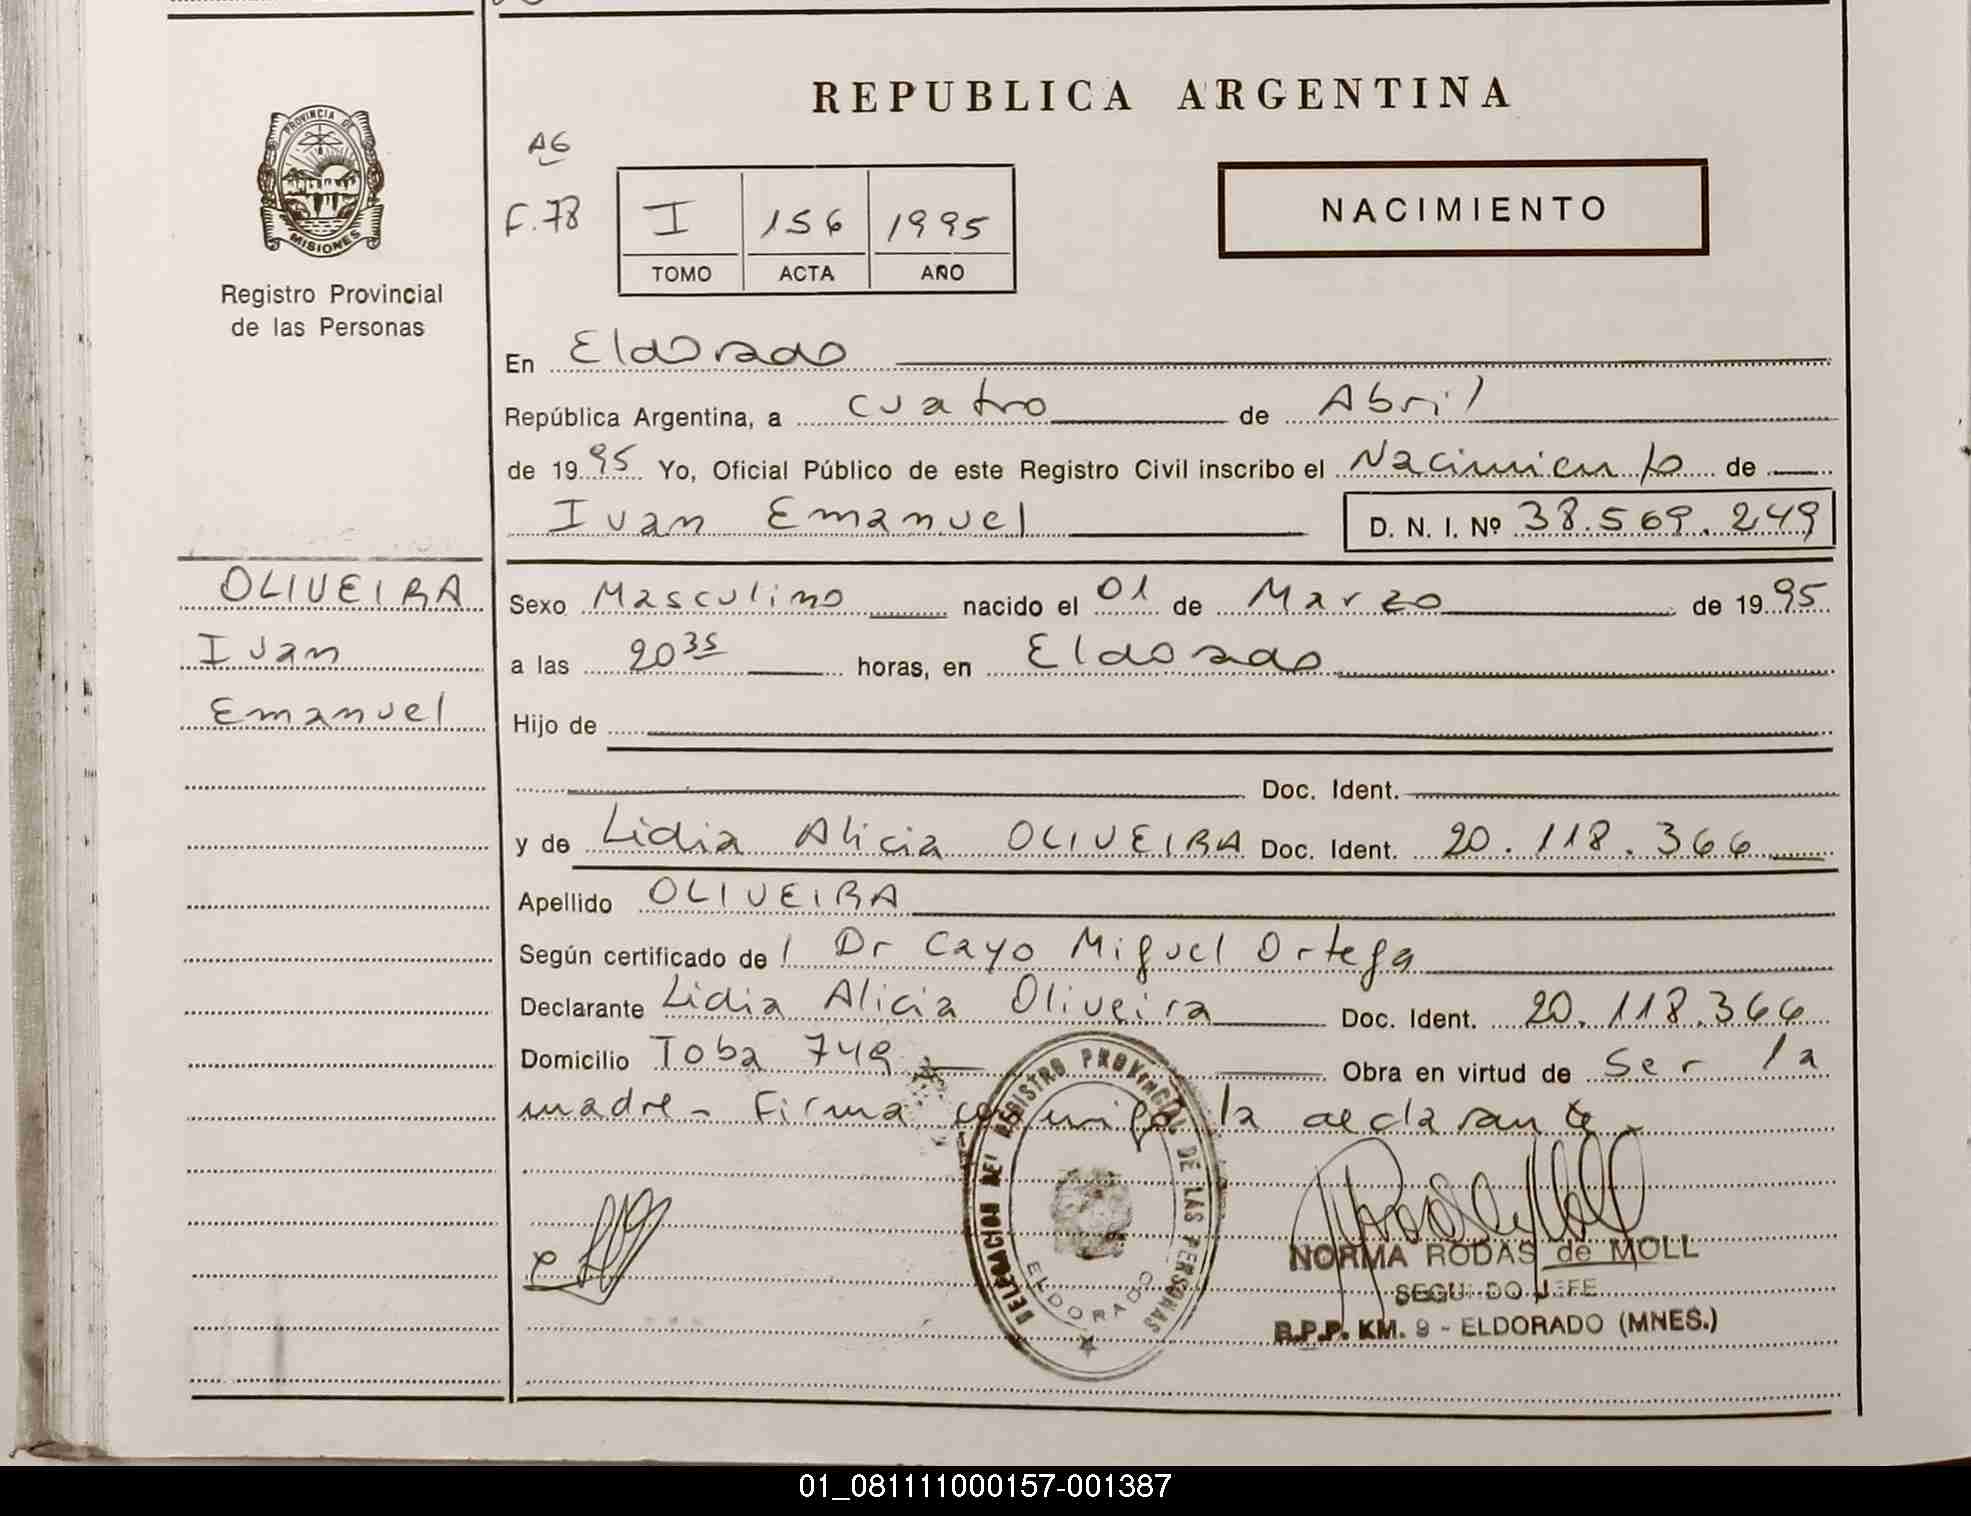 REPUBLICA ARGENTINA
PROVINCIA DE
MISIONES
Registro Provincial
de las Personas
A6
F.78
I 156 1995
TOMO ACTA AÑO
NACIMIENTO
En Eldorado
República Argentina, a cuatro de Abril
de 1995 Yo, Oficial Público de este Registro Civil inscribo el Nacimiento de
Ivan Emanuel D. N. I. Nº 38.569.249
OLIVEIRA
Ivan
Emanuel
Sexo Masculino nacido el 01 de Marzo de 1995
a las 20 35 horas, en Eldorado
Hijo de
Doc. Ident.
y de Lidia Alicia OLIVEIRA Doc. Ident. 20.118.366
Apellido OLIVEIRA
Según certificado de l Dr Cayo Miguel Ortega
Declarante Lidia Alicia Oliveira Doc. Ident. 20.118.366
Domicilio Toba 749 Obra en virtud de Ser la
madre - Firma conmigo la declarante.
DELEGACION DEL REGISTRO PROVINCIAL DE LAS PERSONAS
ELDORADO
NORMA RODAS de MOLL
SEGUNDO JEFE
R.P.P. KM. 9 - ELDORADO (MNES.)
01_081111000157-001387